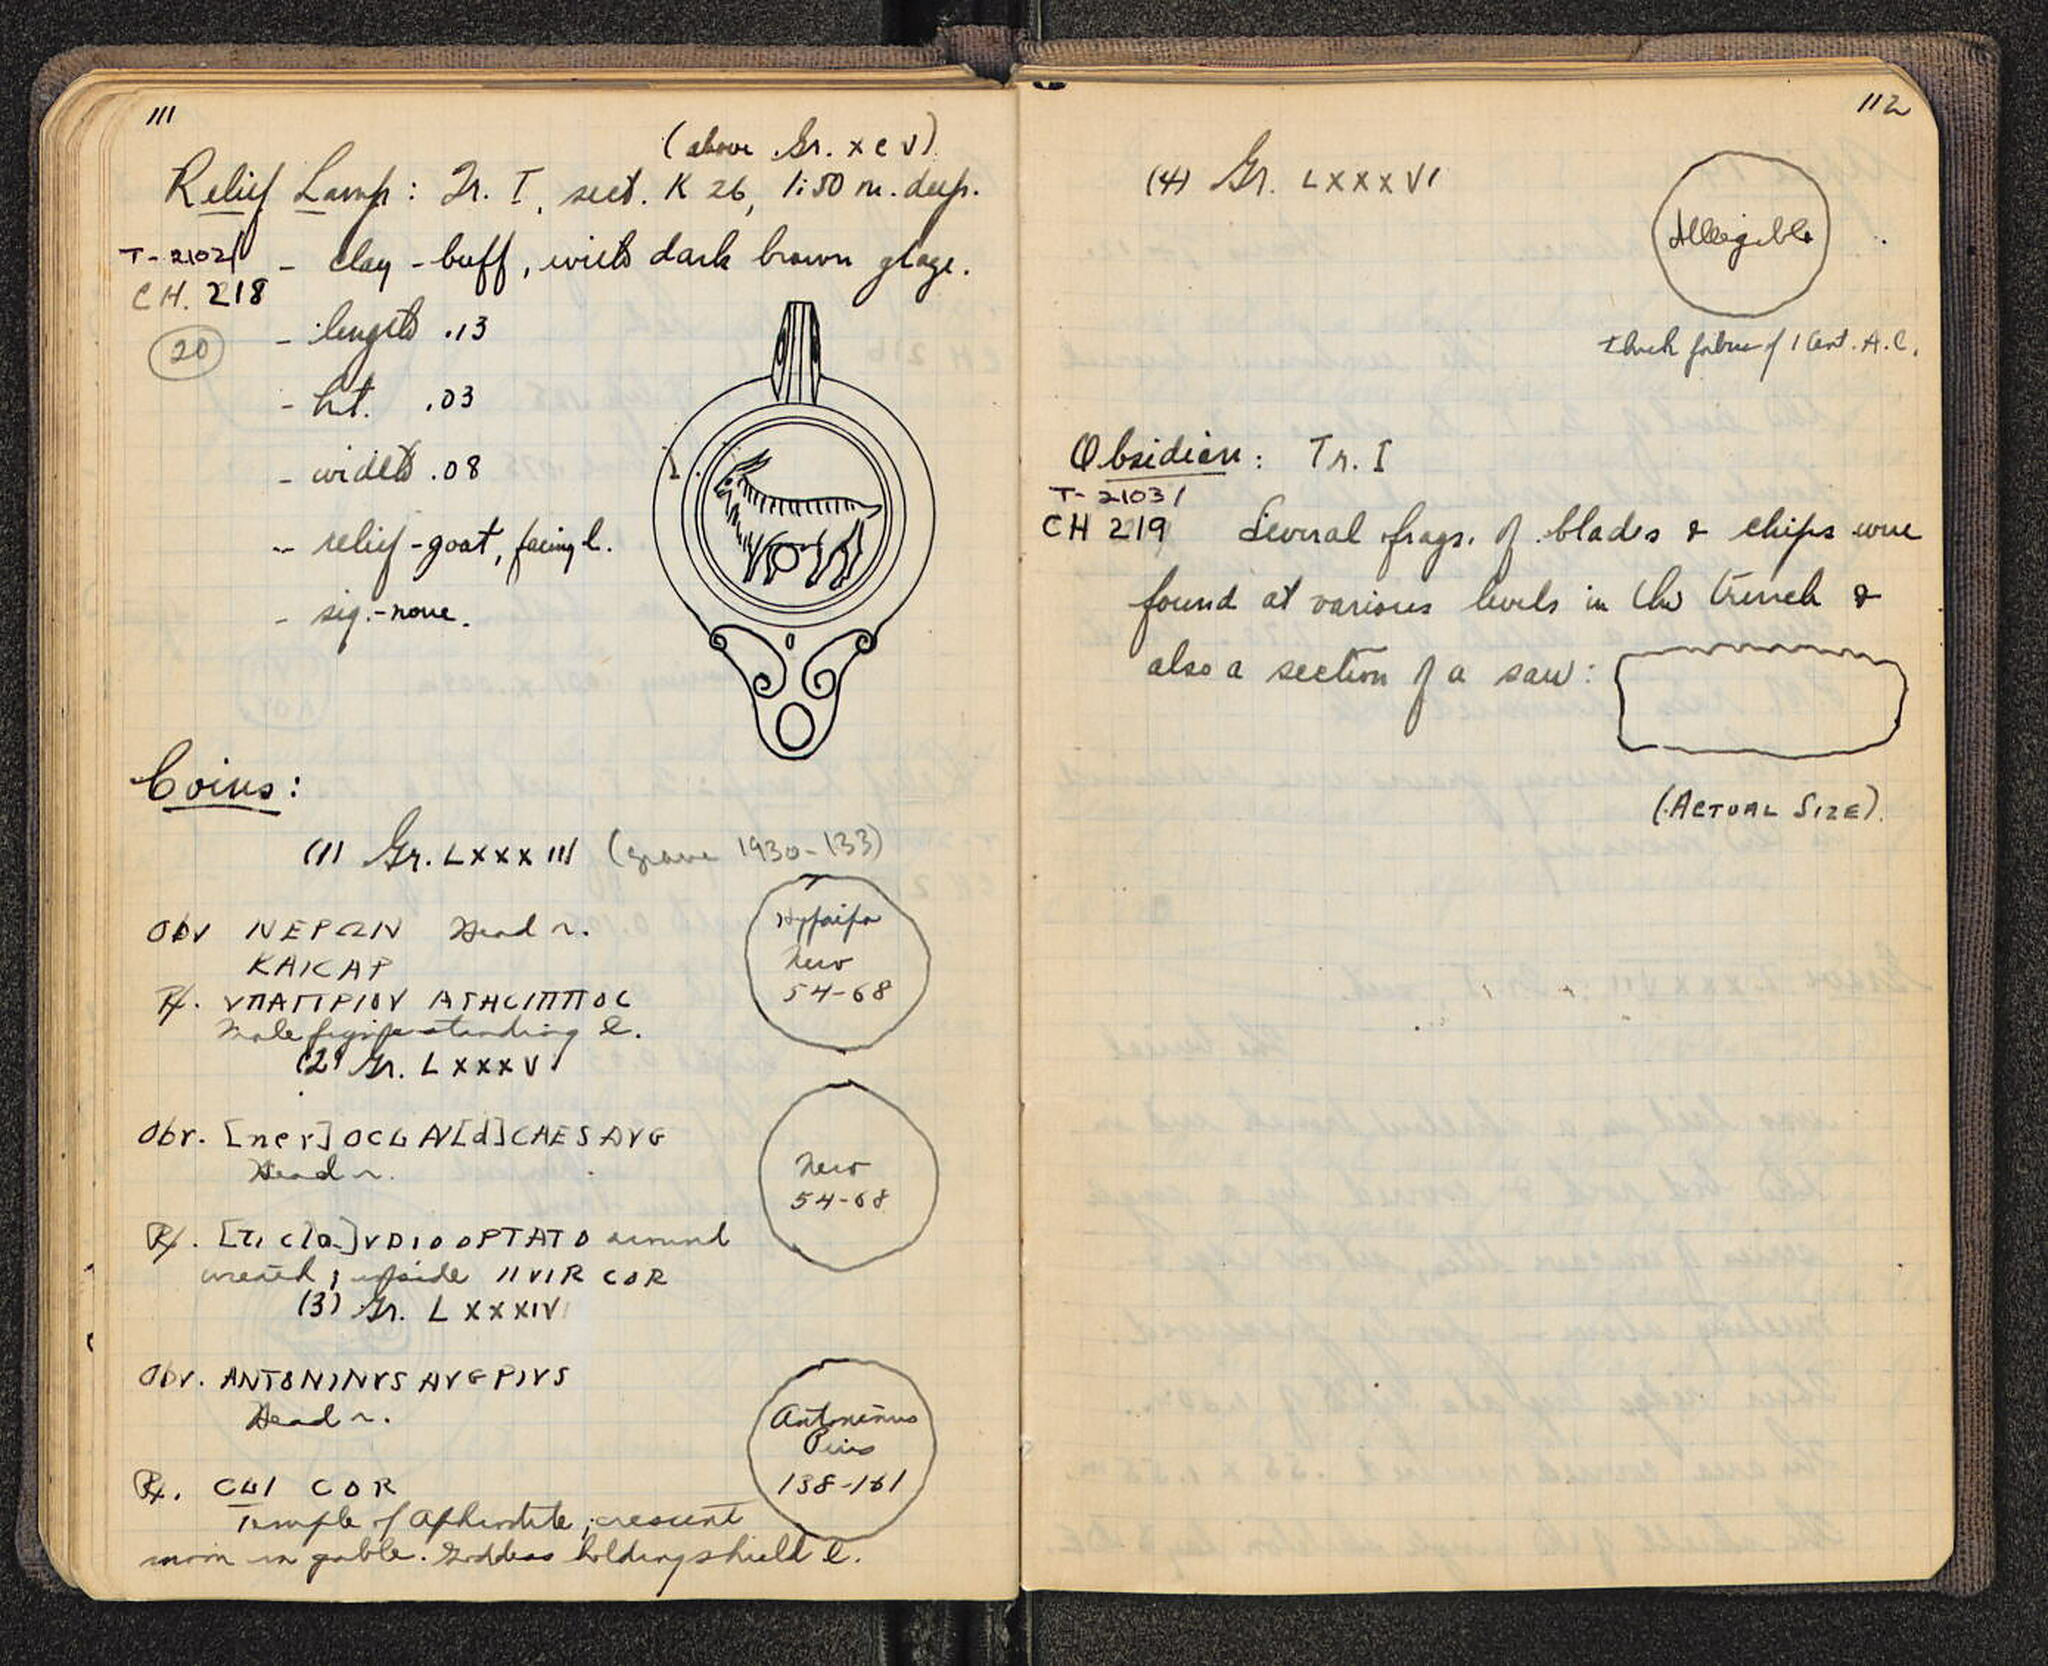 111
(above Gr. XCV)
Relief Lamp: Tr. I, sect. K 26, 1:50 m. deep.
T-2102/ - clay - buff, with dark brown glaze.
CH. 218
- length .13
20
- ht. .03
- width .08
- relief - goat, facing l.
- sig. - none.
Coins:
(1) Gr. LXXXIII (grave 1930-133)
Obv ΝΕΡΩΝ Head r.
ΚΑΙCΑΡ
Hypaipa
Nero
54-68
R/. VΠΑΓΓΡΙΟV ΑΓΗCΙΠΠΟC
Male figure standing l.
(2) Gr. LXXXV
Obv. [ner]OCLAV[d]CAESAVG
Head r.
Nero
54-68
R/. [Ti cla]VDIOOPTATO around
wreath; inside IIVIR COR
(3) Gr. LXXXIV
Obv. ANTONINVS AVGPIVS
Head r.
Antoninus
Pius
138-161
R/. CLI COR
Temple of Aphrodite; crescent
moon in gable. Goddess holding shield l.
112
(4) Gr. LXXXVI
Illegible
thick fabric of 1 Cent. A.C.
Obsidian: Tr. I
T-2103/
CH 219 Several frags. of blades & chips were
found at various levels in the trench &
also a section of a saw:
(ACTUAL SIZE).